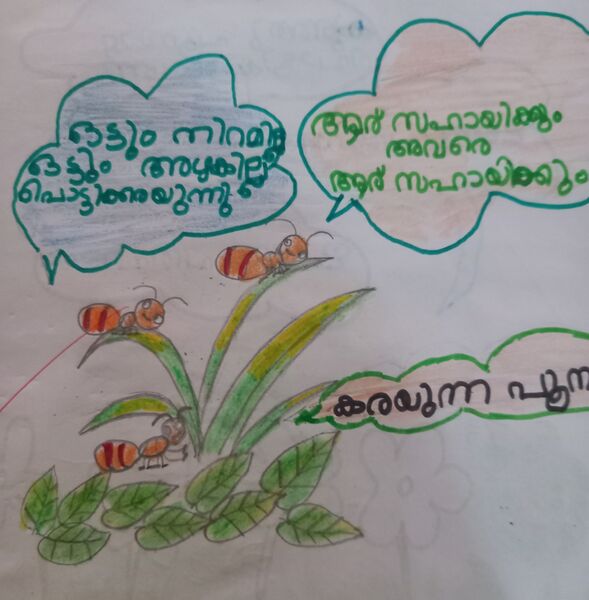 ഒട്ടും നിറമില്ല
ഒട്ടും അഴകില്ല
പൊട്ടിക്കരയുന്നു
ആര് സഹായിക്കും
അവരെ
ആര് സഹായിക്കും
കരയുന്ന